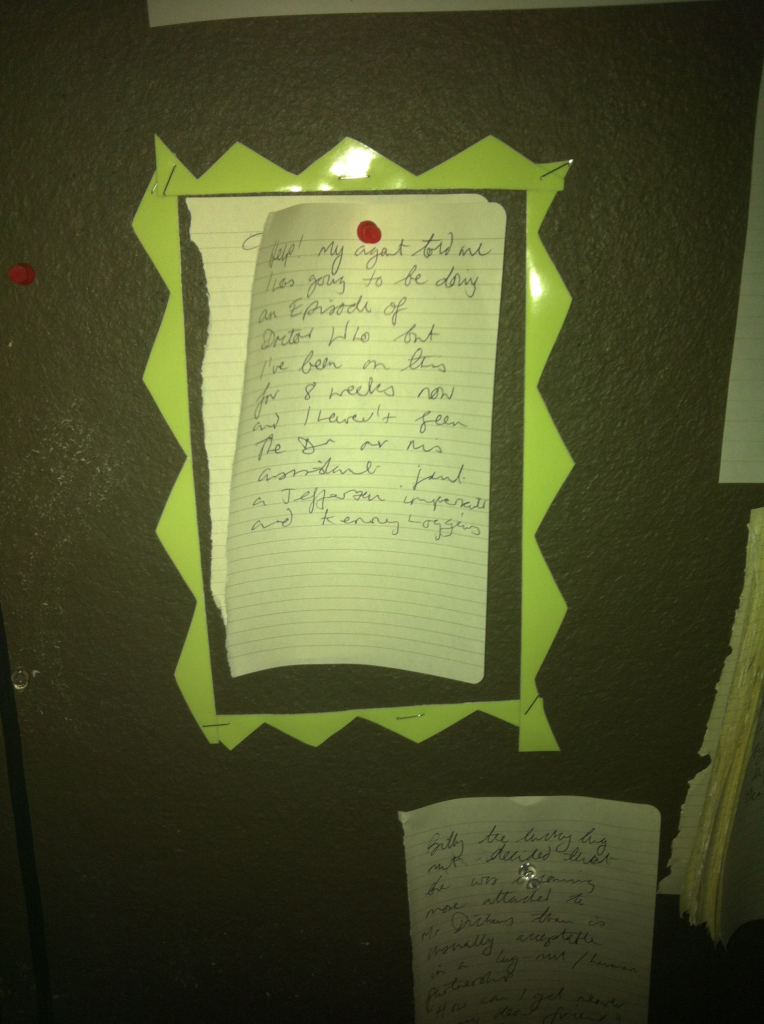 Help! My agent told me
I was going to be doing
an Episode of
Doctor Who but
I've been on this
for 8 weeks now
and I haven't seen
the Dr or his
assistant just
a Jefferson
and Kenny Loggins
Billy the lucky lug
nut decided that
he was becoming
more attached to
Mr Dickens than is
usually acceptable
in a lug-nut / human
partnership
"How can I get nearer
my dear friend"